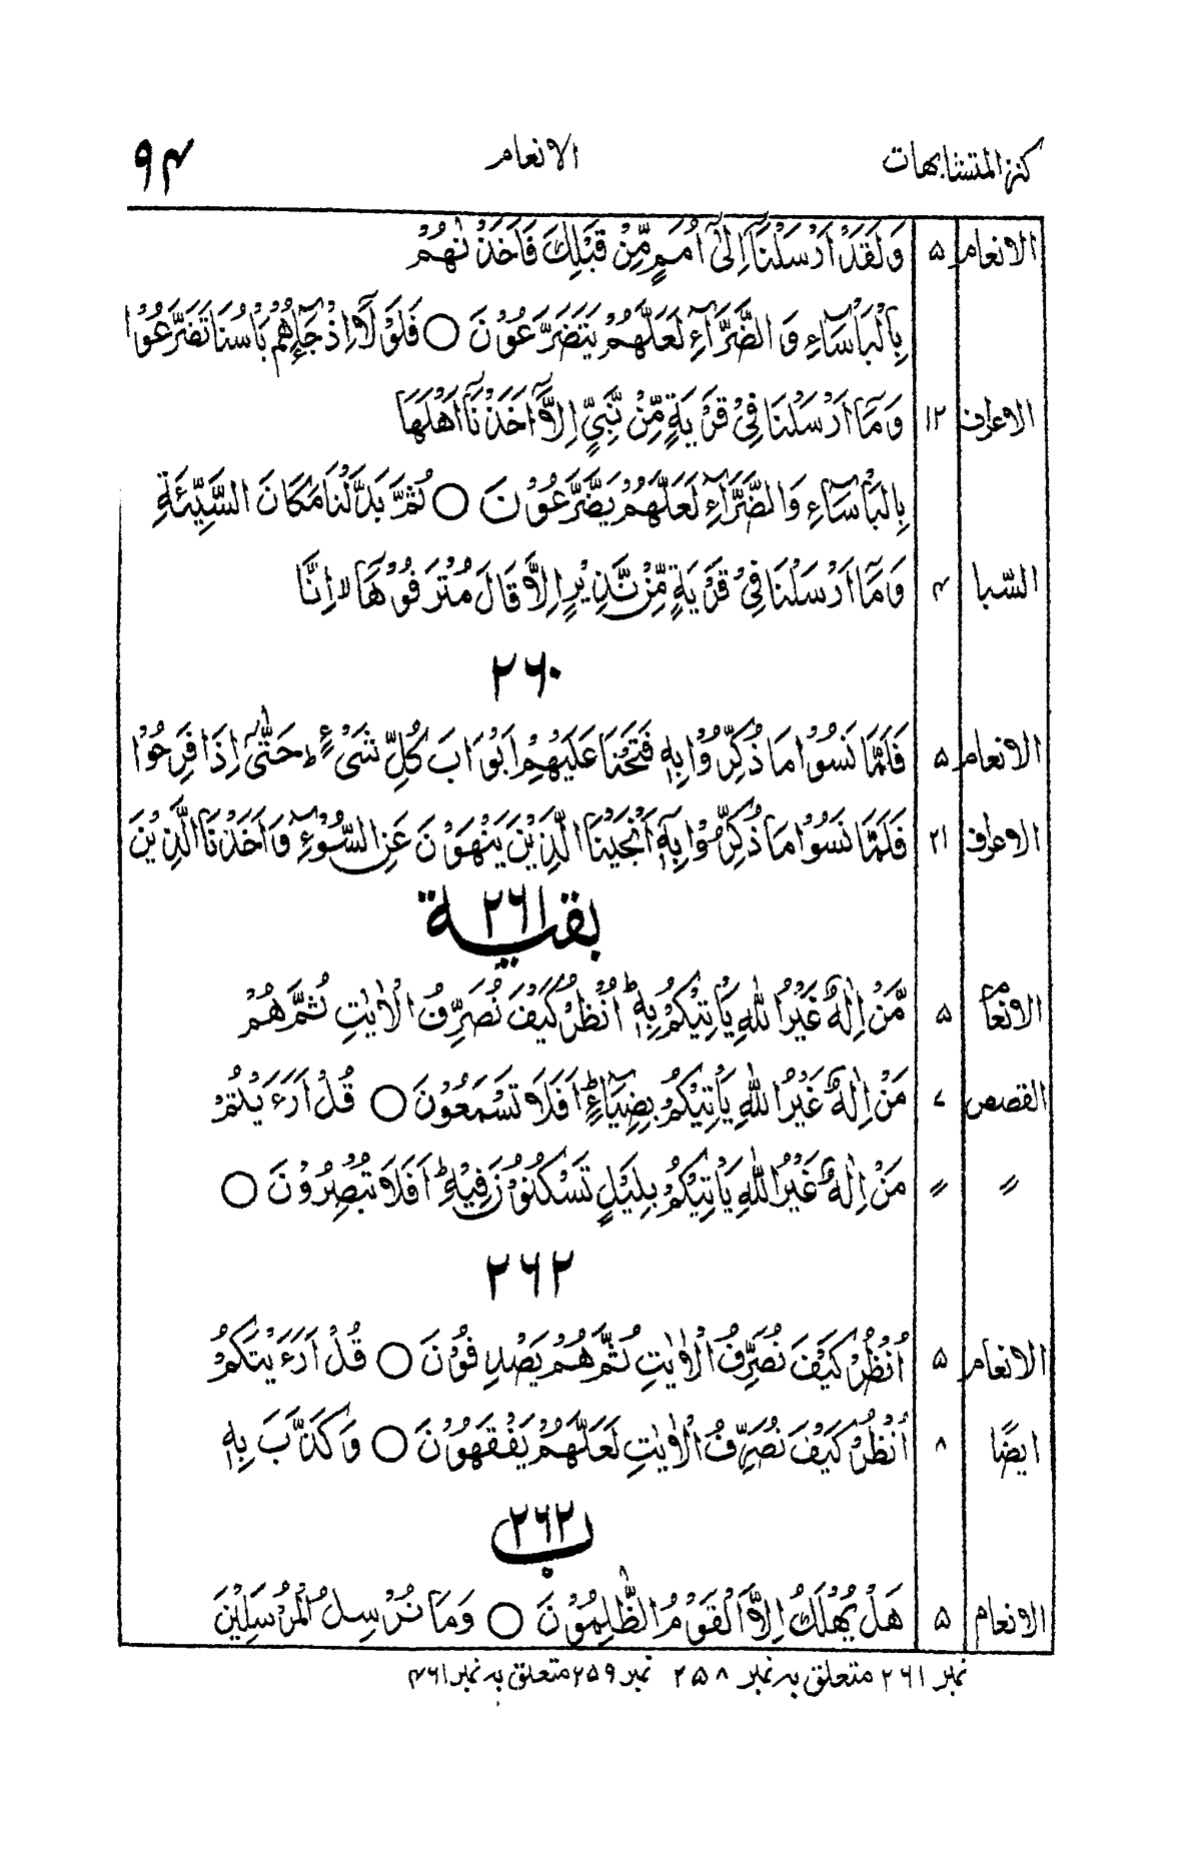 كنز المتشابهات الانعام ۹۴
الانعام ۵ وَلَقَدْ اَرْسَلْنَاۤ اِلٰۤى اُمَمٍ مِّنْ قَبْلِكَ فَاَخَذْنٰهُمْ
بِالْبَاْسَآءِ وَ الضَّرَّآءِ لَعَلَّهُمْ يَتَضَرَّعُوْنَ ○ فَلَوْ لَاۤ اِذْ جَآءَهُمْ بَاْسُنَا تَضَرَّعُوْا
الاعراف ۱۲ وَمَاۤ اَرْسَلْنَا فِىْ قَرْيَةٍ مِّنْ نَّبِىٍّ اِلَّاۤ اَخَذْنَاۤ اَهْلَهَا
بِالْبَاْسَآءِ وَالضَّرَّآءِ لَعَلَّهُمْ يَضَّرَّعُوْنَ ○ ثُمَّ بَدَّلْنَا مَكَانَ السَّيِّئَةِ
السبا ۴ وَمَاۤ اَرْسَلْنَا فِىْ قَرْيَةٍ مِّنْ نَّذِيْرٍ اِلَّا قَالَ مُتْرَفُوْهَاۤ ۙ اِنَّا
۲۶۰
الانعام ۵ فَلَمَّا نَسُوْا مَا ذُكِّرُوْا بِهٖ فَتَحْنَا عَلَيْهِمْ اَبْوَابَ كُلِّ شَىْءٍ ؕ حَتّٰۤى اِذَا فَرِحُوْا
الاعراف ۲۱ فَلَمَّا نَسُوْا مَا ذُكِّرُوْا بِهٖۤ اَنْجَيْنَا الَّذِيْنَ يَنْهَوْنَ عَنِ السُّوْٓءِ وَاَخَذْنَا الَّذِيْنَ
بقية ۲۶۱
الانعام ۵ مَّنْ اِلٰهٌ غَيْرُ اللّٰهِ يَاْتِيْكُمْ بِهٖ ؕ اُنْظُرْ كَيْفَ نُصَرِّفُ الْاٰيٰتِ ثُمَّ هُمْ
القصص ۷ مَنْ اِلٰهٌ غَيْرُ اللّٰهِ يَاْتِيْكُمْ بِضِيَآءٍ ؕ اَفَلَا تَسْمَعُوْنَ ○ قُلْ اَرَءَيْتُمْ
〃 〃 مَنْ اِلٰهٌ غَيْرُ اللّٰهِ يَاْتِيْكُمْ بِلَيْلٍ تَسْكُنُوْنَ فِيْهِ ؕ اَفَلَا تُبْصِرُوْنَ ○
۲۶۲
الانعام ۵ اُنْظُرْ كَيْفَ نُصَرِّفُ الْاٰيٰتِ ثُمَّ هُمْ يَصْدِفُوْنَ ○ قُلْ اَرَءَيْتَكُمْ
ايضًا ۸ اُنْظُرْ كَيْفَ نُصَرِّفُ الْاٰيٰتِ لَعَلَّهُمْ يَفْقَهُوْنَ ○ وَكَذَّبَ بِهٖ
۲۶۲ ب
الانعام ۵ هَلْ يُهْلَكُ اِلَّا الْقَوْمُ الظّٰلِمُوْنَ ○ وَمَا نُرْسِلُ الْمُرْسَلِيْنَ
نمبر ۲۶۱ متعلق بہ نمبر ۲۵۸ نمبر ۲۵۹ متعلق بہ نمبر ۴۶۱